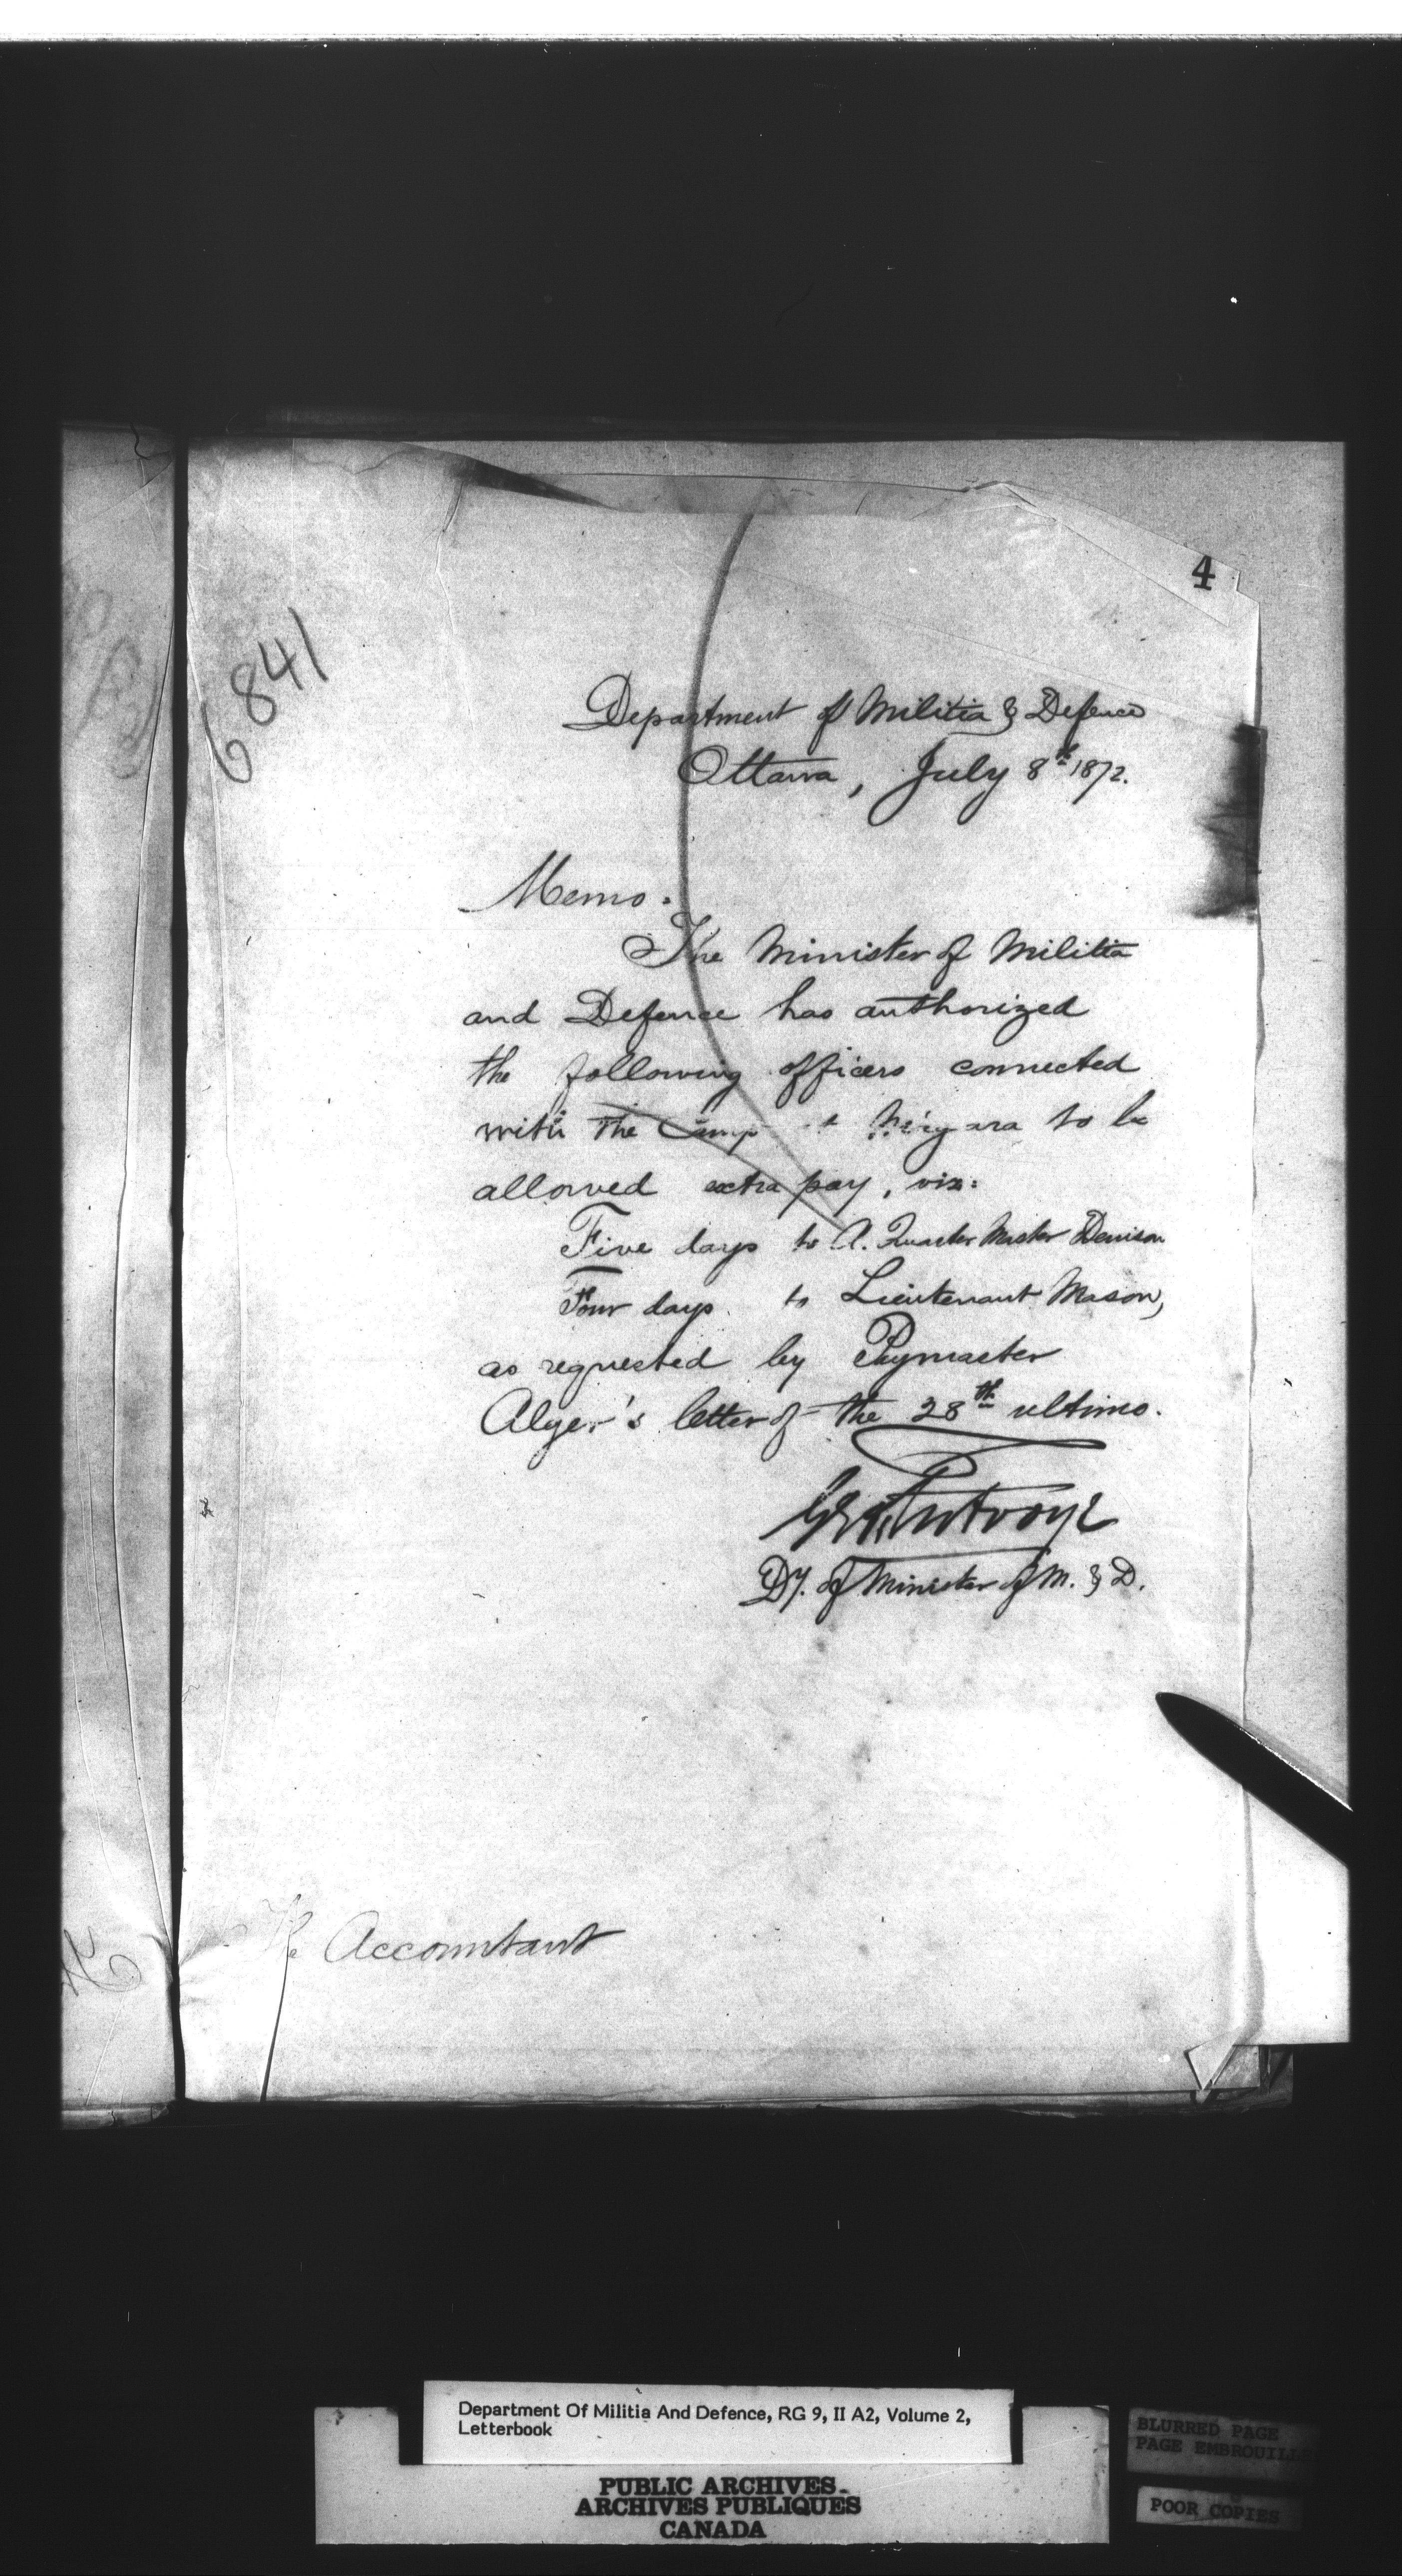 4
6841
Department of Militia & Defence
Ottawa, July 8th 1872.
Memo.
The Minister of Militia
and Defence has authorized
the following officers connected
with the Camp at Niagara to be
allowed extra pay, viz:
Five days to A. Quarter Master Denison
Four days to Lieutenant Mason,
as requested by Paymaster
Alger's letter of the 28th ultimo.
Futvoye
Dy. of Minister of M. & D.
The Accountant
Department Of Militia And Defence, RG 9, II A2, Volume 2,
Letterbook
PUBLIC ARCHIVES
ARCHIVES PUBLIQUES
CANADA
BLURRED PAGE
PAGE EMBROUILL
POOR COPIES